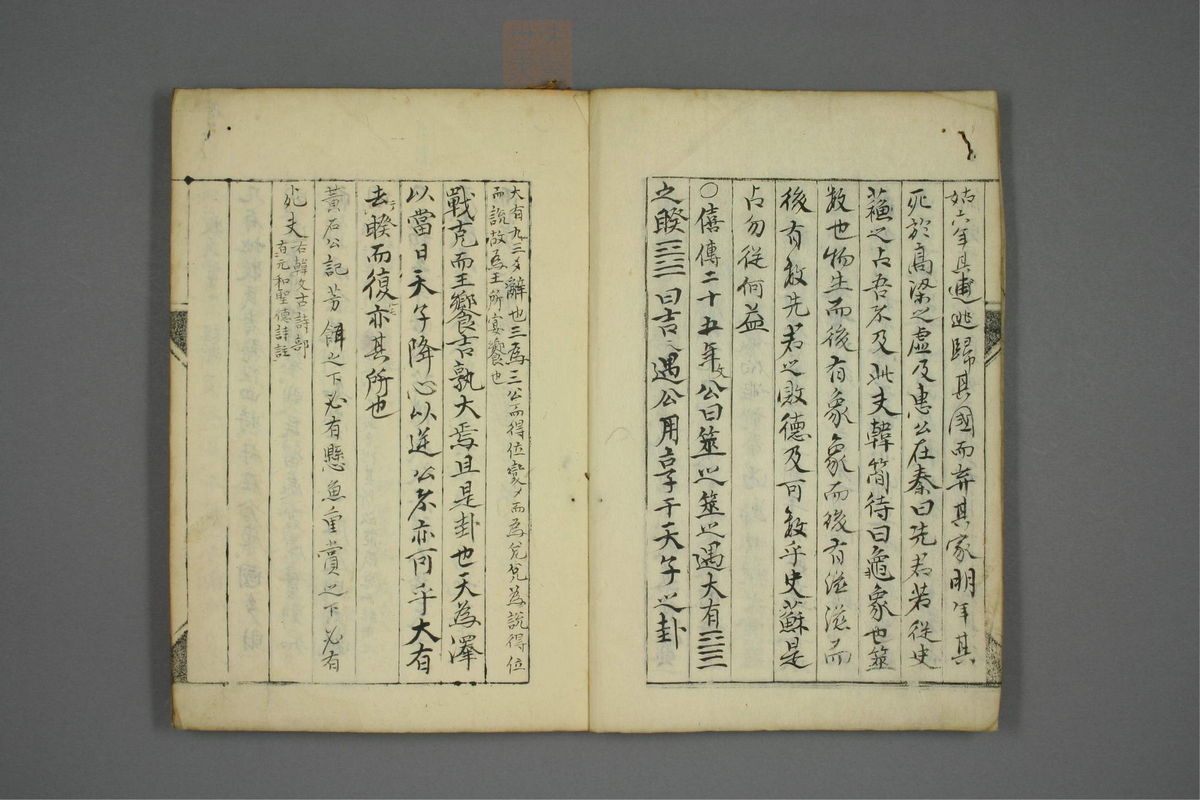 姑六年其逋逃歸其國而弃其家明年其
死於高梁之虛及惠公在秦曰先君若從史
蘓之占吾不及此夫韓簡待曰龜象也筮
数也物生而後有象象而後有滋滋而
後有数先君之敗德及可数乎史蘇是
占勿從何益
○僖傳二十五年文公曰筮之筮之遇大有䷍
之睽䷥曰吉遇公用亨于天子之卦
大有九三爻辭也三爲三公而得位變而爲兌兌爲說得位
而說故爲王所宴饗也
戰克而王饗吉孰大焉且是卦也天為澤
以當日天子降心以逆公不亦可乎大有
去睽而復亦其所也
黃石公記芳餌之下必有懸魚重賞之下必有
死夫
右韓文古詩部
元和聖德詩註